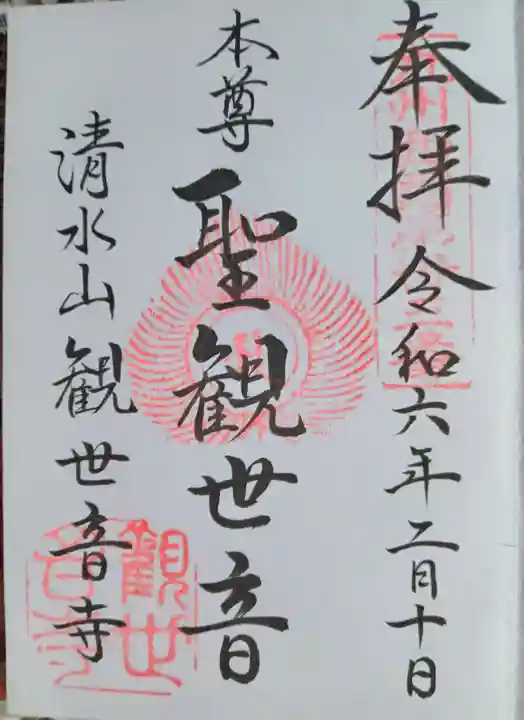 奉拝 令和六年二月十日
本尊 聖観世音
清水山観世音寺
観世音寺